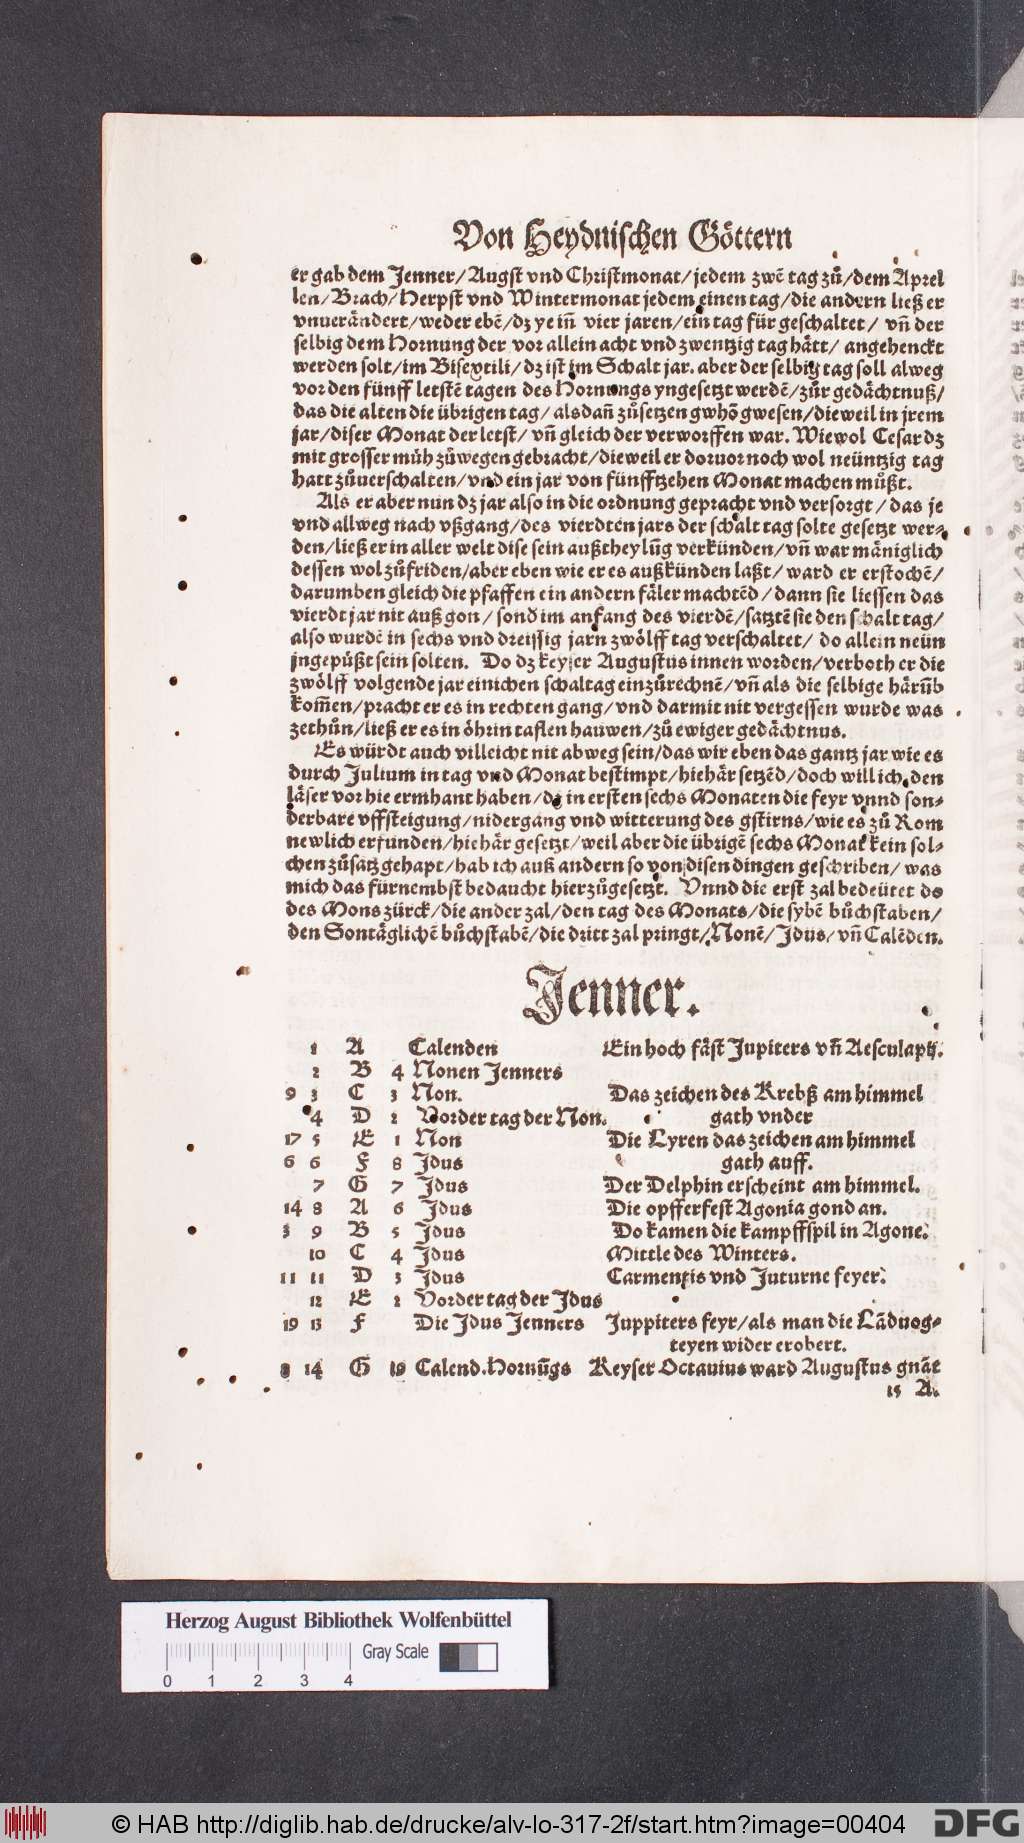 Von Heydnischen Göttern
er gab dem Jenner/ Augst vnd Christmonat/ jedem zwē tag zů/ dem Aprel
len/ Brach/ Herpst vnd Wintermonat jedem einen tag/ die andern ließ er
vnuerändert/ weder ebē/ dz ye in̄ vier jaren/ ein tag für geschaltet/ vn̄ der
selbig dem Hornung der vor allein acht vnd zwentzig tag hätt/ angehenckt
werden solt/ im Bisextili/ dz ist im Schalt jar. aber der selbig tag soll alweg
vor den fünff letstē tagen des Hornungs yngesetzt werdē/ zůr gedächtnuß/
das die alten die übrigen tag/ als dan̄ zůsetzen gwhō gwesen/ dieweil in jrem
jar/ diser Monat der letst/ vn̄ gleich der verworffen war. Wiewol Cesar dz
mit grosser müh zůwegen gebracht/ dieweil er doruor noch wol neüntzig tag
hatt zůuerschalten/ vnd ein jar von fünfftzehen Monat machen můßt.
Als er aber nun dz jar also in die ordnung gepracht vnd versorgt/ das je
vnd allweg nach vßgang/ des vierdten jars der schalt tag solte gesetzt wer⸗
den/ ließ er in aller welt dise sein außtheylūg verkünden/ vn̄ war mäniglich
dessen wol zůfriden/ aber eben wie er es außkünden laßt/ ward er erstochē/
darumben gleich die pfaffen ein andern fäler machtēd/ dann sie liessen das
vierdt jar nit auß gon/ sond im anfang des vierdē/ satztē sie den schalt tag/
also wurdē in sechs vnd dreissig jarn zwölff tag verschaltet/ do allein neün
jngepüßt sein solten. Do dz keyser Augustus innen worden/ verboth er die
zwölff volgende jar einichen schaltag einzůrechnē/ vn̄ als die selbige härūb
kom̄en/ pracht er es in rechten gang/ vnd darmit nit vergessen wurde was
zethůn/ ließ er es in öhrin taflen hauwen/ zů ewiger gedächtnus.
Es würdt auch villeicht nit abweg sein/ das wir eben das gantz jar wie es
durch Julium in tag vnd Monat bestimpt/ hiehär setzēd/ doch will ich den
läser vor hie ermhant haben/ dz in ersten sechs Monaten die feyr vnnd son⸗
derbare vffsteigung/ nidergang vnd witterung des gstirns/ wie es zů Rom
newlich erfunden/ hiehär gesetzt/ weil aber die übrigē sechs Monat kein sol⸗
chen zůsatz gehapt/ hab ich auß andern so von disen dingen geschriben/ was
mich das fürnembst bedaucht hierzůgesetzt. Vnnd die erst zal bedeütet do
des Mons zürck/ die ander zal/ den tag des Monats/ die sybē bůchstaben/
den Sontäglichē bůchstabē/ die dritt zal pringt/ Nonē/ Idus/ vn̄ Calēden.
Jenner.
1 A Calenden Ein hoch fäst Jupiters vn̄ Aesculapij.
2 B 4 Nonen Jenners
9 3 C 3 Non. Das zeichen des Krebß am himmel
4 D 2 Vorder tag der Non. gath vnder
17 5 E 1 Non Die Lyren das zeichen am himmel
6 6 F 8 Idus gath auff.
7 G 7 Idus Der Delphin erscheint am himmel.
14 8 A 6 Idus Die opfferfest Agonia gond an.
3 9 B 5 Idus Do kamen die kampffspil in Agone.
10 C 4 Idus Mittle des Winters.
11 11 D 3 Idus Carmentis vnd Juturne feyer.
12 E 2 Vorder tag der Idus
19 13 F Die Idus Jenners Juppiters feyr/ als man die Lādvog⸗
teyen wider erobert.
8 14 G 19 Calend. Hornūgs Keyser Octauius ward Augustus gnāt
15 A.
Herzog August Bibliothek Wolfenbüttel
Gray Scale
0 1 2 3 4
© HAB http://diglib.hab.de/drucke/alv-lo-317-2f/start.htm?image=00404
DFG